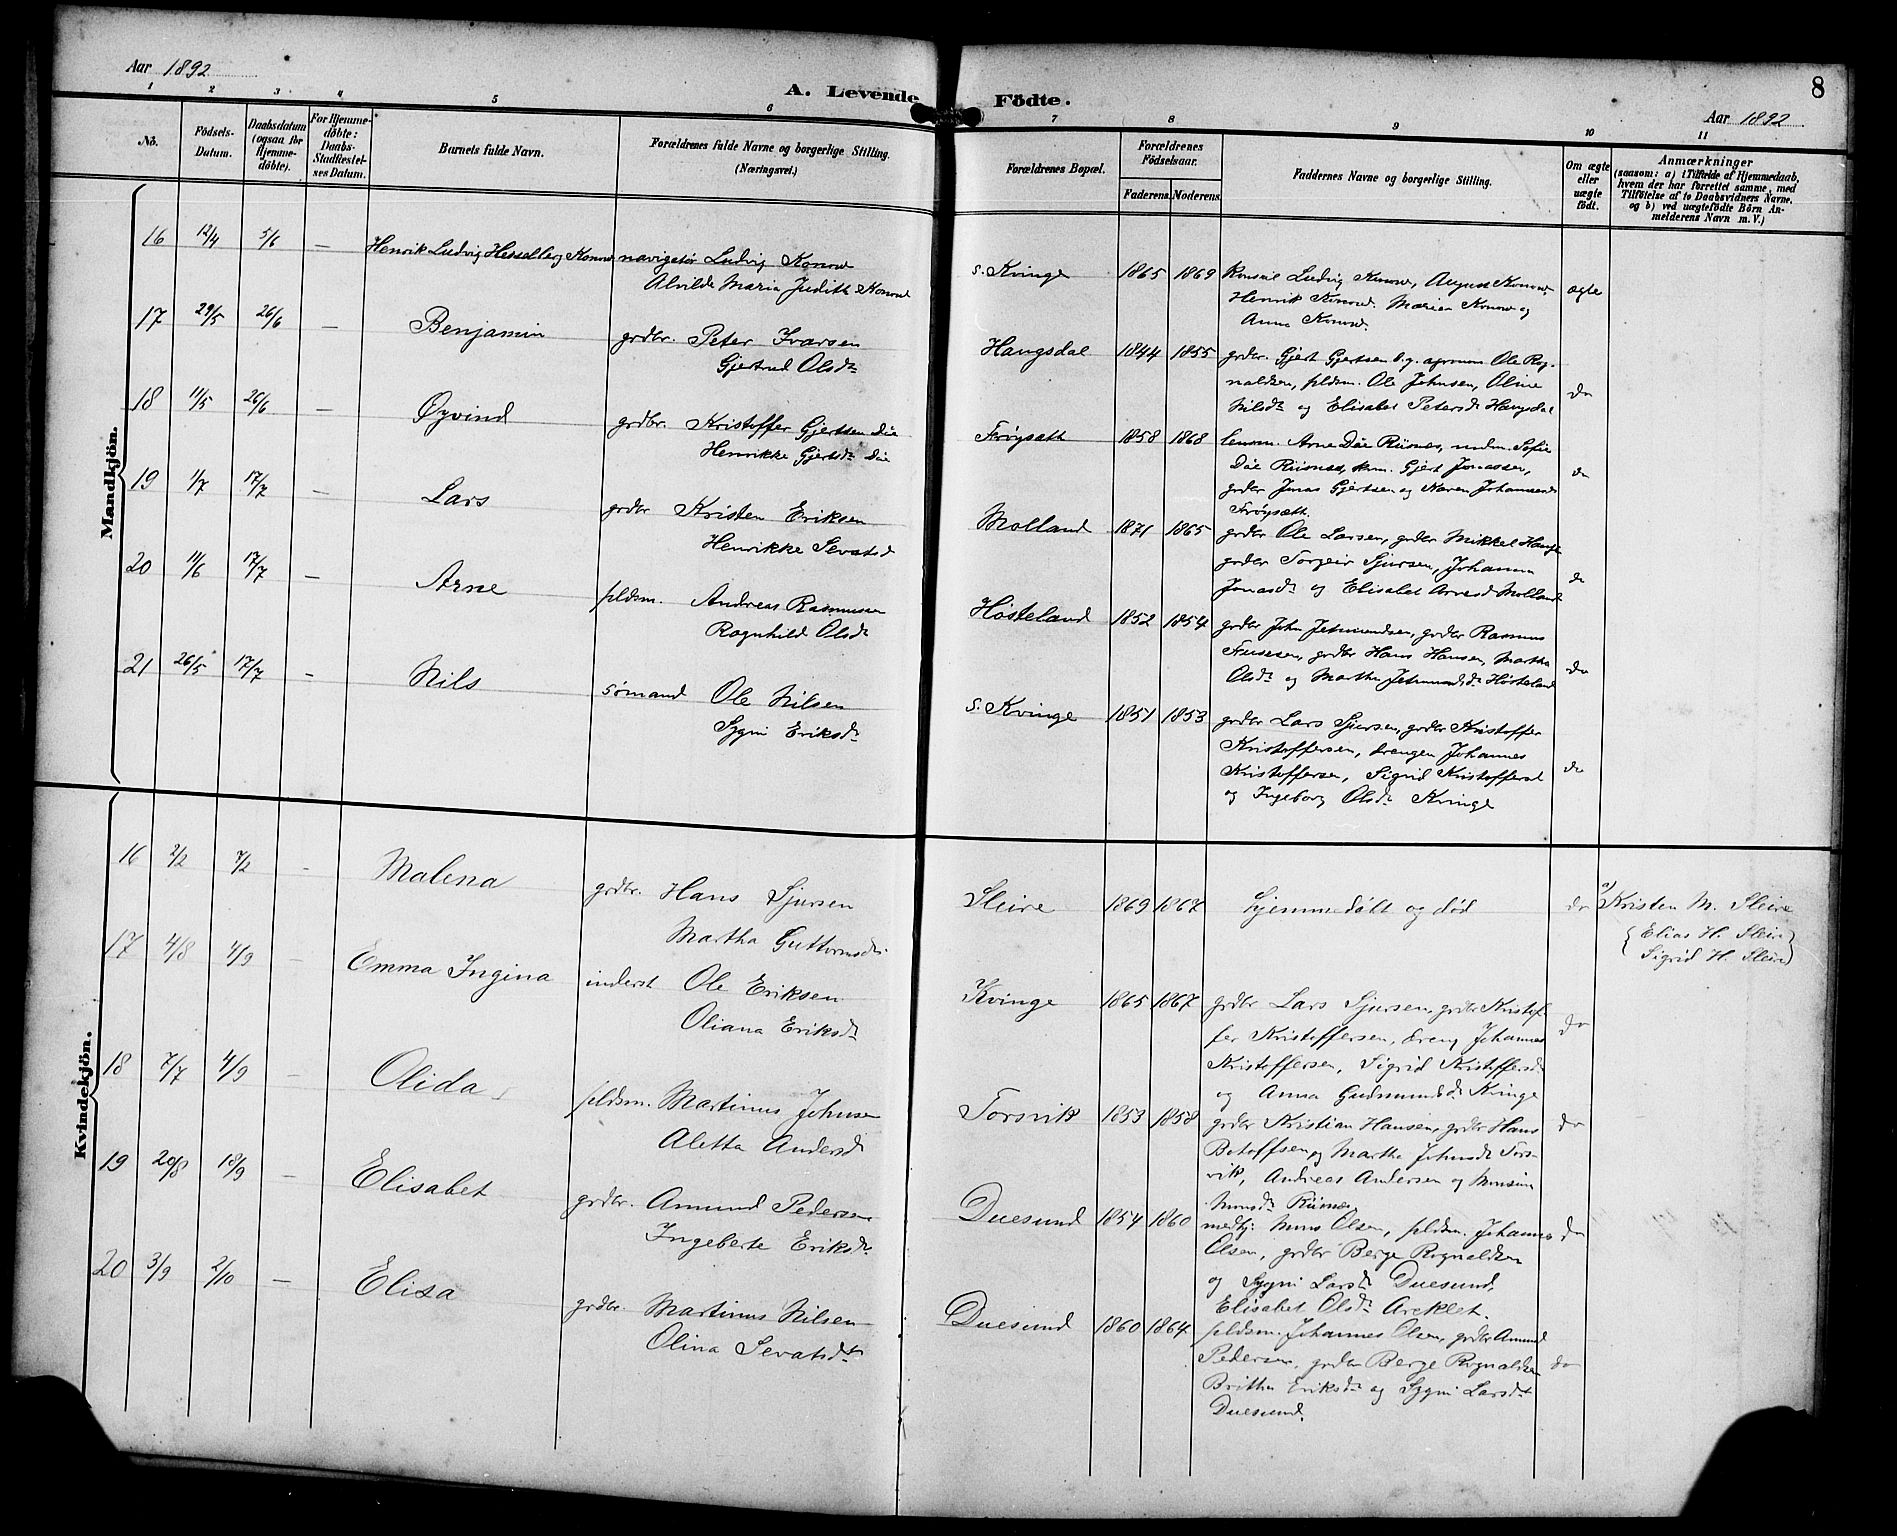 Aar 1892
A. Levende Födte.
8
Aar 1892
1 2 3 4 5 6 7 8 9 10 11
No.
Födsels-Datum.
Daabsdatum (ogsaa for Hjemme-döbte).
For Hjemme-döbte: Daabs-Stadfæstel-ses Datum.
Barnets fulde Navn.
Forældrenes fulde Navne og borgerlige Stilling. (Næringsvei.)
Forældrenes Bopæl.
Forældrenes Födselsaar.
Faderens. Moderens.
Faddernes Navne og borgerlige Stilling.
Om ægte eller uægte födt.
Anmærkninger
(saasom: a) i Tilfælde af Hjemmedaab, hvem der har forrettet samme, med Tilföielse af to Daabsvidners Navne, og b) ved uægtefödte Börn An-melderens Navn m. V.)
Mandkjön.
16 12/4 5/6 — Henrik Ludvig Hesselberg Konow navigatör Ludvig Konow
Alvilde Maria Judith Konow
s. Kvinge 1865 1869 Konsul Ludvig Konow, August Konow,
Henrik Konow. Marien Konow og
Anna Konow.
ægte
17 29/5 26/6 — Benjamin grdbr. Peter Ivarsen
Gjertrud Olsdtr
Haugsdal 1844 1855 grdbr. Gjert Gjertsen b.g. agronom Ole Rog-
naldsen, pldsm. Ole Johnsen, Oline
Nilsdtr og Elisabet Petersdtr Haugsdal
do
18 11/5 26/6 — Øyvind grdbr. Kristoffer Gjertsen Däe
Henrikke Gjertsdtr Däe
Frøysætt 1858 1868 lensm. Arne Däe Riisnes, Sofie
Däe Riisnes, Gjert Jonassen,
grdbr Jonas Gjertsen og Karen Johannesd
Frøysætt.
do
19 1/7 17/7 — Lars grdbr Kristen Eriksen
Henrikke Sevatsd
Molland 1871 1865 grdbr Ole Larsen, grdbr Mikkel
grdbr Torgeir Sjursen, Johanna
Jonasdtr og Elisabet Arnesd Molland
do
20 11/6 17/7 — Arne pldsm. Andreas Rasmussen
Ragnhild Olsdtr
Høsteland 1852 1854 grdbr John Jetmundsen, grdbr Rasmus
grdbr Hans Hansen, Martha
Olsdtr og Martha Jetmundsdtr Høsteland
do
21 26/5 17/7 - Nils sømand Ole Nilsen
Sygni Eriksdtr
s. Kvinge 1851 1853 grdbr Lars Sjursen, grdbr Kristoffer
Kristoffersen, drengen Johannes
Kristoffersen, Sigrid Kristoffersd
og Ingeborg Olsdtr Kvinge
do
Kvindekjön.
16 2/2 7/2 - Malena grdbr. Hans Sjursen
Martha Guttormsdtr
Sleire 1869 1867 hjemmedøbt og død do a) Kristen M. Sleire
(Elias H. Sleire)
(Sigrid H. Sleire)
17 4/8 4/9 — Emma Ingina inderst Ole Eriksen
Oliana Eriksdtr
Kvinge 1865 1867 grdbr Lars Sjursen, grdbr Kristof-
fer Kristoffersen, dreng Johannes
Kristoffersen, Sigrid Kristoffersd
og Anna Gudmundsdtr Kvinge
do
18 7/7 4/9 — Olida pldsm. Martinus Johnsen
Aletta Andersd
Torsvik 1853 1858 grdbr Kristian Hansen, grdbr Hans
Botolfsen og Martha Johnsdtr Tors-
vik, Andreas Andersen og Monsine
Monsdtr Riisnes
do
19 20/8 18/9 — Elisabet grdbr. Amund Pedersen
Ingeberte Eriksdtr
Duesund 1854 1860 medhj. Mons Olsen, pldsm. Johannes
Olsen, grdbr Berge Rognaldsen
og Sygni Larsdtr Duesund,
Elisabet Olsdtr Areklet.
do
20 3/9 2/10 — Elisa grdbr. Martinus Nilsen
Olina Sevatsdtr
Duesund 1860 1864 pldsm. Johannes Olsen, grdbr Amund
Pedersen, grdbr Berge Rognaldsen
Britha Eriksdtr og Sygni Larsdtr
Duesund.
do